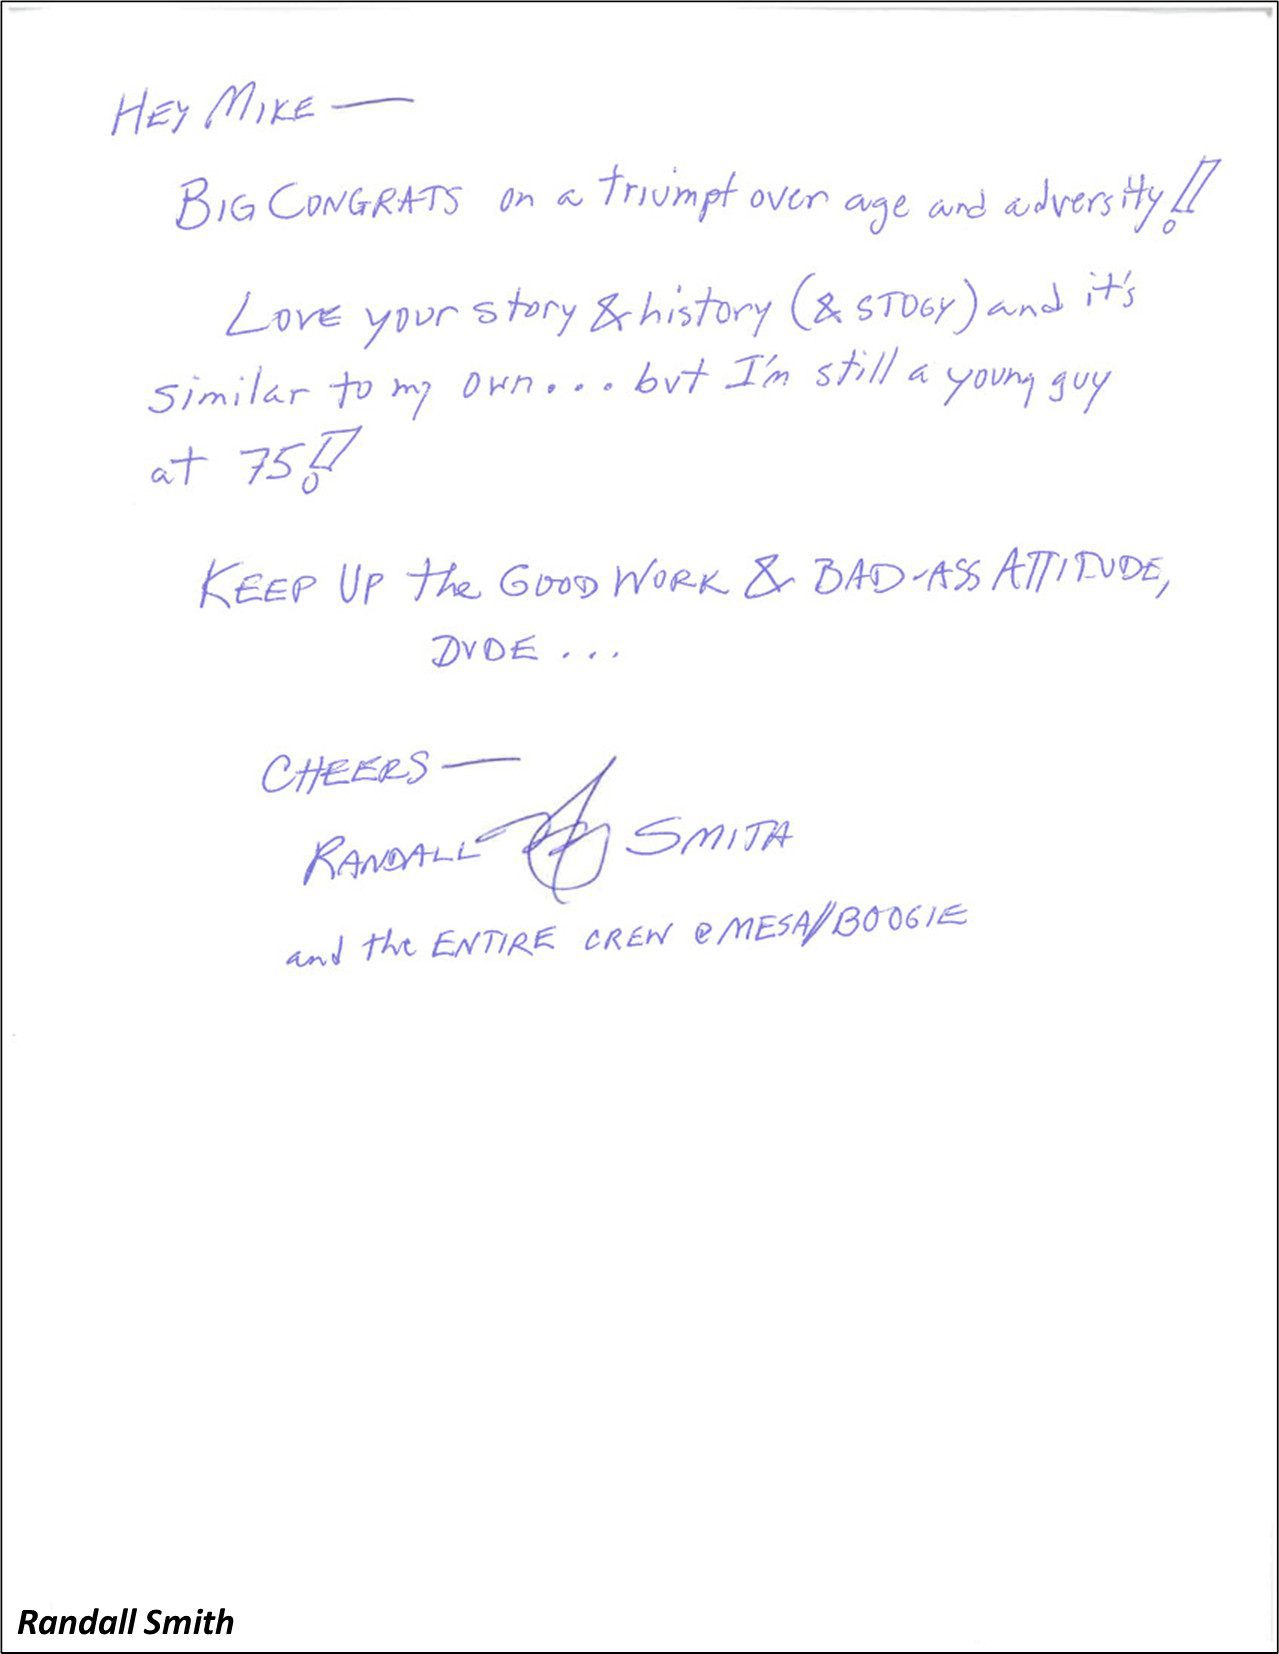 HEY MIKE —
BIG CONGRATS on a triumpt over age and adversity!!
LOVE your story & history (& STOGY) and it's
similar to my own... but I'm still a young guy
at 75!!
KEEP UP the GOOD WORK & BAD-ASS ATTITUDE,
DUDE ...
CHEERS —
RANDALL SMITH
and the ENTIRE CREW @ MESA//BOOGIE
Randall Smith